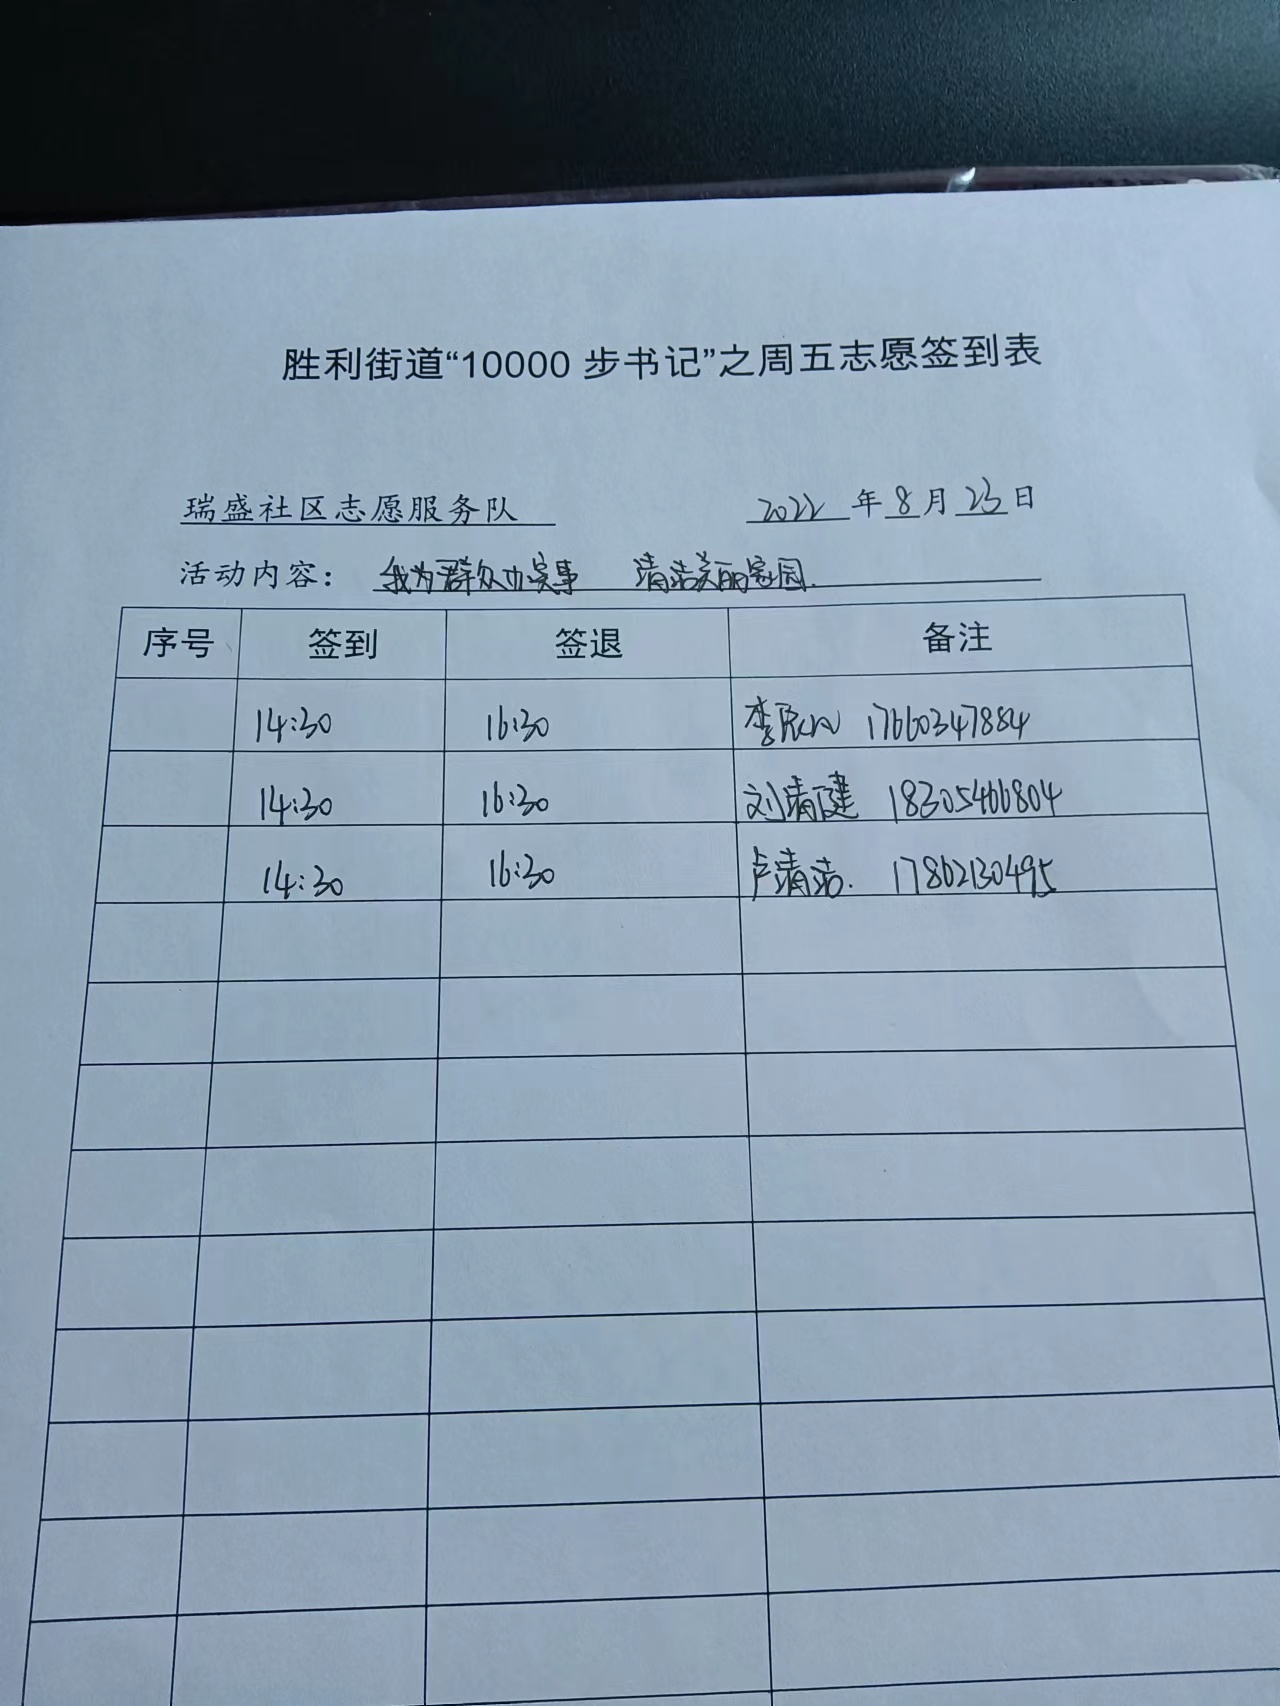 胜利街道“10000 步书记”之周五志愿签到表
瑞盛社区志愿服务队 2022 年 8 月 23 日
活动内容： 我为群众办实事 清洁美丽家园.
序号 签到 签退 备注
14:30 16:30 李 17660347884
14:30 16:30 刘清健 18305466804
14:30 16:30 卢清洁. 17862130495